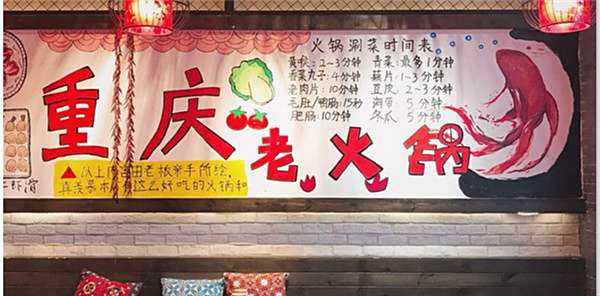 火锅涮菜时间表
黄喉：2~3分钟 青菜：最多1分钟
香菜丸子：4分钟 藕片：1~3分钟
老肉片：10分钟 豆皮：2~3分钟
毛肚/鸭肠：15秒 海带：5分钟
肥肠：10分钟 冬瓜：5分钟
重庆老火锅
以上 由老板亲手所绘，
真羡慕 有这么好吃的火锅和
虾滑